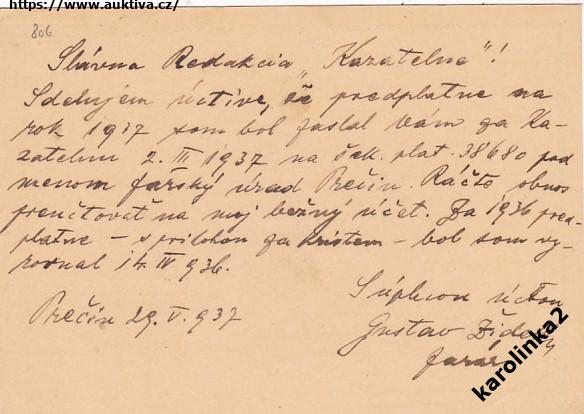 https://www.auktiva.cz/
806.
Slávna Redakcia „Kazatelne"!
Sdelujem úctive, že predplatne na
rok 1937 som bol zaslal Vám za Ka-
zatelnu 2. III 1937 na šek. plat. 38680 pod
menom farský úrad Prečin. Ráčte obnos
preúčtovať na moj bežný účet. Za 1936 pred-
platne – s prílohou za Kristem – bol som vy-
rovnal 14. IV 936.
S úplnou úctou
Prečin 29. V. 937
Gustav
farár
karolinka2